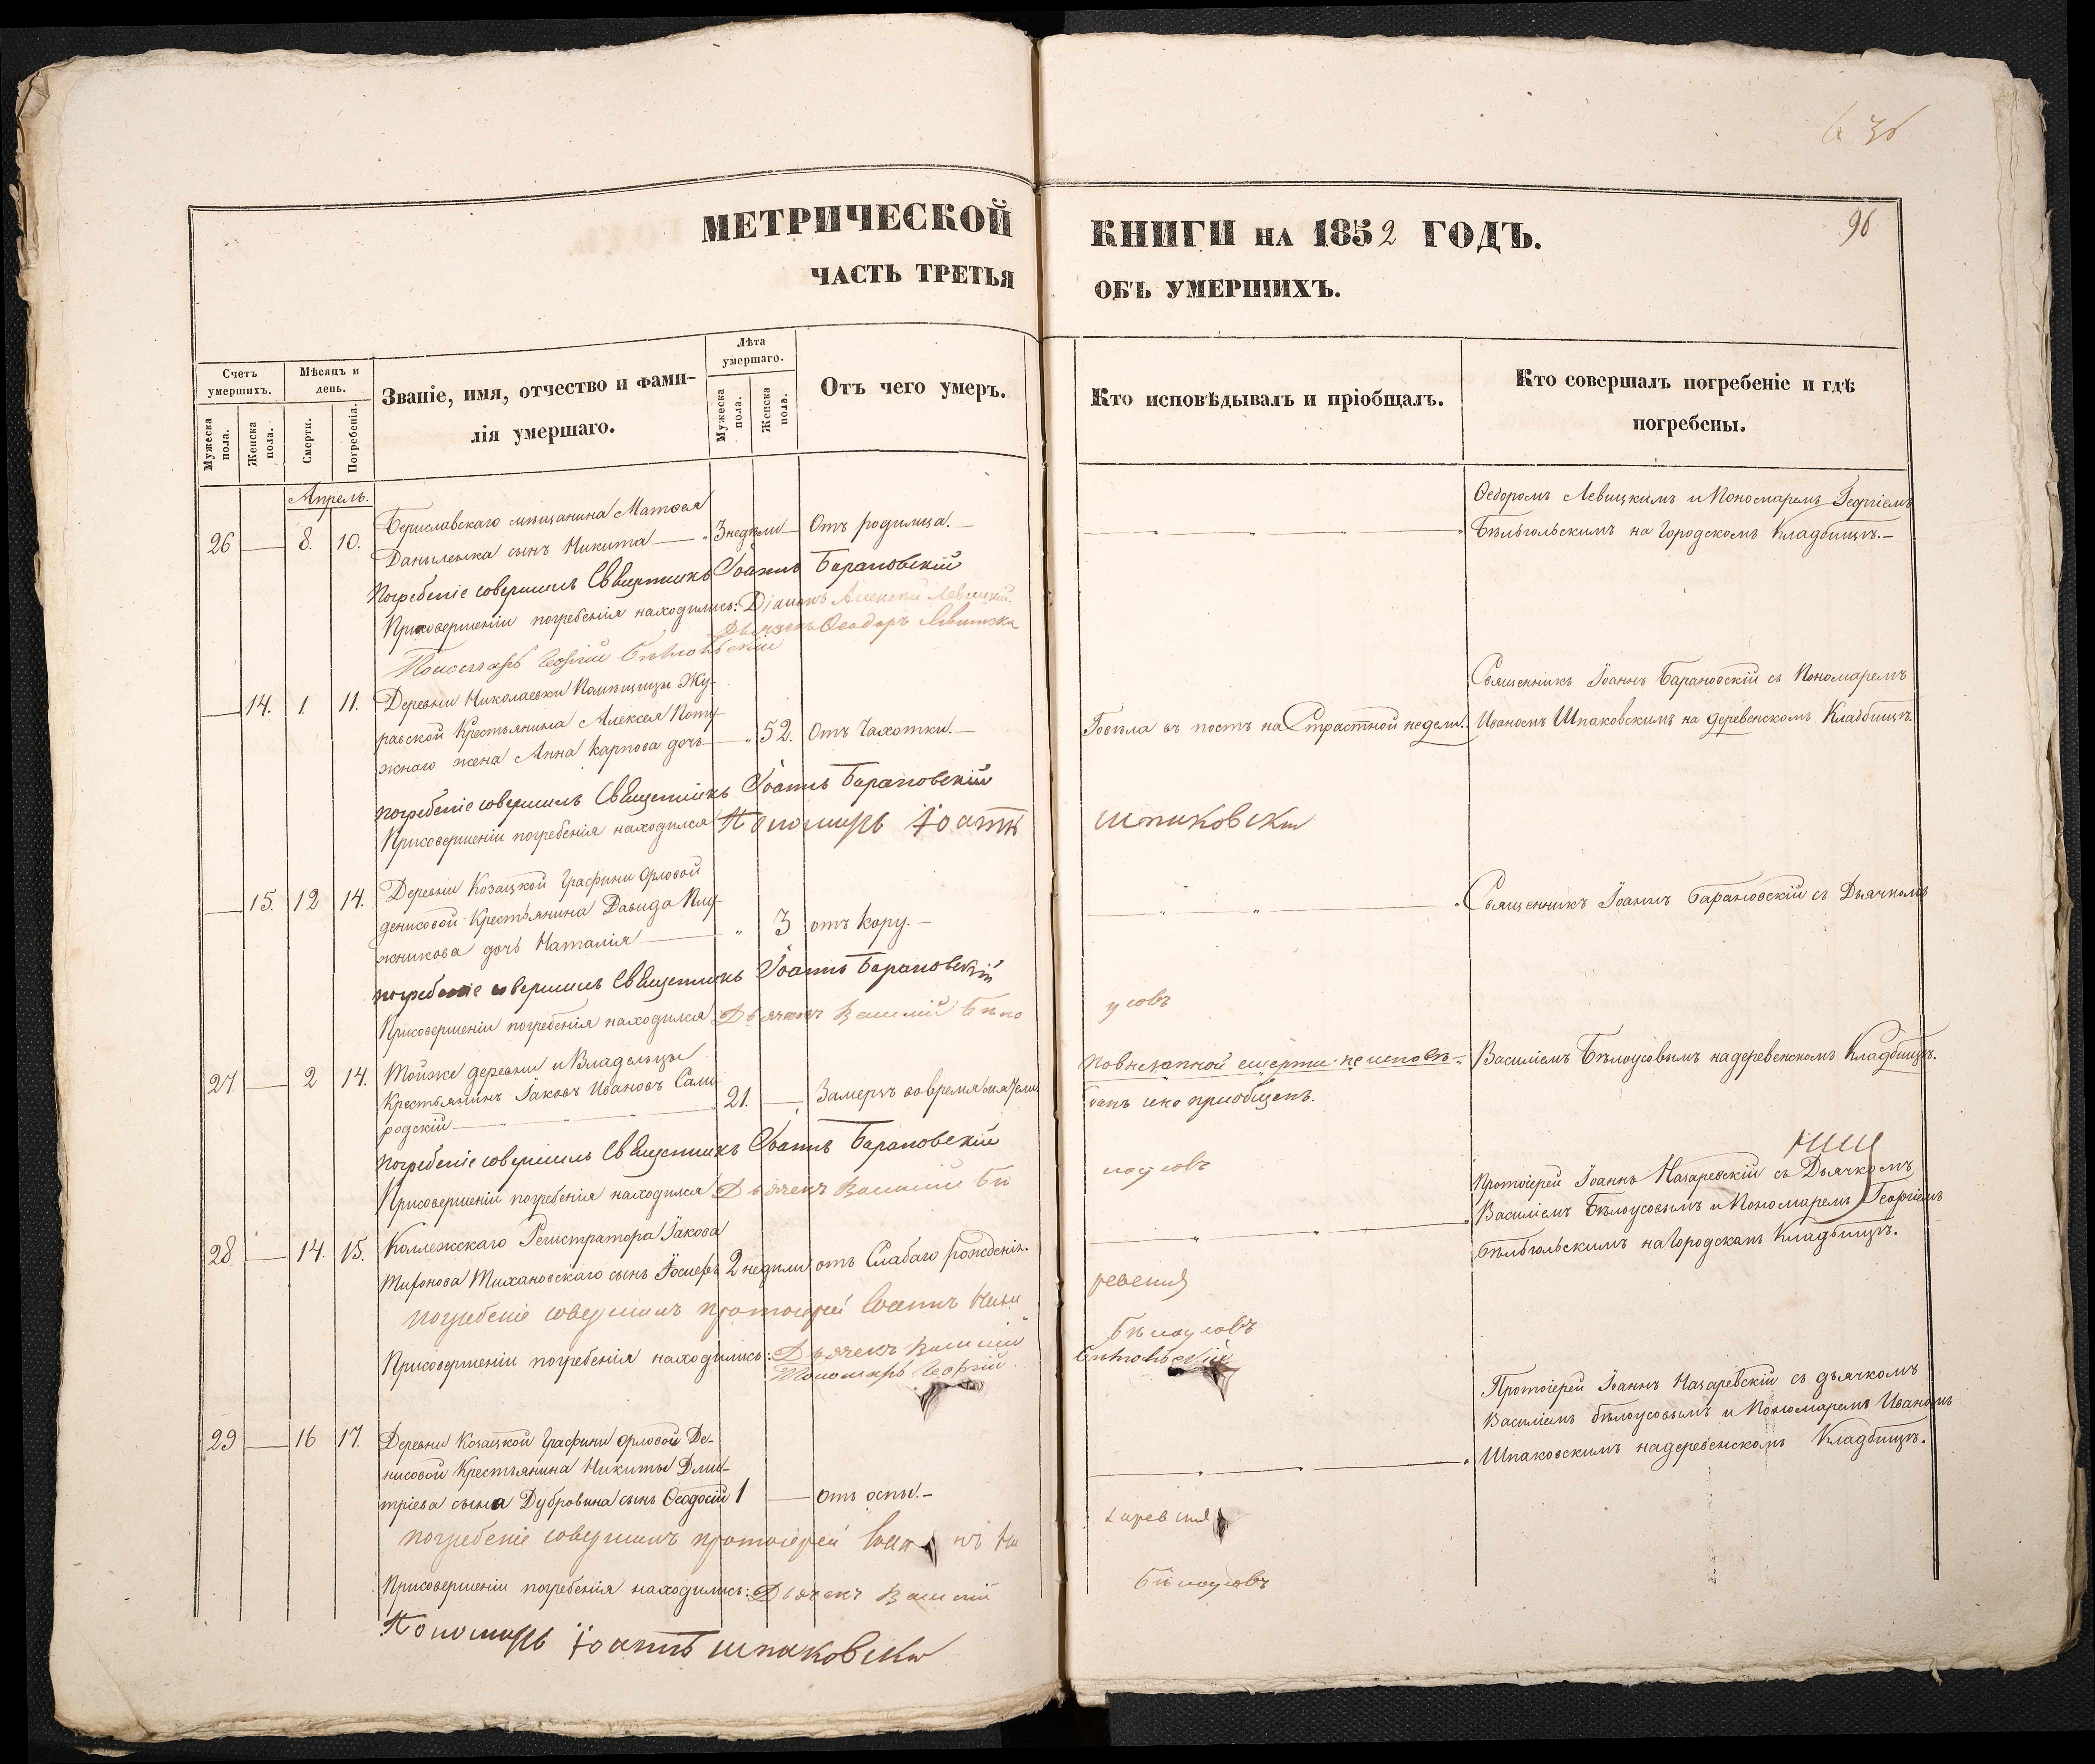 96
МЕТРИЧЕСКОЙ КНИГИ НА 1852 ГОДЪ.
ЧАСТЬ ТРЕТЬЯ ОБЪ УМЕРШИХЪ.
Счетъ умершихъ.
Мужеска пола.
Женска пола.
Мѣсяцъ и день.
Смерти.
Погребенія.
Званіе, имя, отчество и фами-
лія умершаго.
Лѣта умершаго.
Мужеска пола.
Женска пола.
Отъ чего умеръ.
Кто исповѣдывалъ и пріобщалъ.
Кто совершалъ погребеніе и гдѣ
погребены.
Апрель.
26 — 8. 10.
Бериславскаго мѣщанина Матѳея
Даныленка сынъ Никита — 3 недѣли — Отъ родимца. —
Ѳедоромъ Левицкимъ и Пономаремъ Георгіемъ
Бѣльгольскимъ на Городскомъ Кладбищѣ. —
Погребеніе совершилъ Священникъ Іоаннъ Барановскій
При совершеніи погребенія находились: Діаконъ Алексѣй Левицкій.
Дьячекъ Ѳеодоръ Левитски
Пономарь Георгій
— 14. 1. 11.
Деревни Николаевки Помѣщицы Жу-
равской Крестьянина Алексея Нопу-
жнаго жена Анна Карпова дочь — 52. Отъ Чахотки. —
Говѣла въ постъ на Страстной недели.
Священникъ Іоаннъ Барановскій съ Пономаремъ
Иваномъ Шпаковскимъ на деревенскомъ Кладбищѣ.
погребеніе совершилъ Священникъ Іоаннъ Барановскій
При совершеніи погребенія находился Пономарь Іоаннъ шпаковски
— 15. 12 14.
Деревни Козацкой Графини Орловой
Денисовой Крестьянина Давида
жникова дочь Наталія — 3 отъ Кору. —
Священникъ Іоаннъ Барановскій съ Дьячкомъ
погребеніе совершилъ Священникъ Іоаннъ Барановскій
При совершеніи погребенія находился Дьячекъ Василий Бѣлоусовъ
27. — 2 14.
Тойже деревни и Владельцы
Крестьянинъ Іаковъ Ивановъ Сами-
родскій — 21. — Замерзъ вовремя мятели
Повнезапной смерти неисповѣ-
данъ пріобщенъ.
Василіемъ Бѣлоусовымъ на деревенскомъ Кладбищѣ.
Погребеніе совершилъ Священникъ Іоаннъ Барановскій
При совершеніи погребенія находился Дьячекъ Василий Бѣлоусовъ
28 — 14. 15.
Коллежскаго Регистратора Іакова
Миронова Михановскаго сынъ Іосифъ 2 недѣли отъ Слабаго рожденія.
Протоіерей Іоаннъ Назаревскій съ Дьячкомъ
Василіемъ Бѣлоусовымъ и Пономаремъ Георгіемъ
Бѣльгольскимъ на Городскомъ Кладбищѣ.
погребеніе совершилъ протоіерей Іоаннъ
При совершеніи погребенія находились: Дьячекъ Василий Бѣлоусовъ
Пономарь Георгій
29 — 16 17.
Деревни Козацкой Графини Орловой Де-
нисовой Крестьянина Никиты Дми-
тріева сына Дубровина сынъ Ѳеодосій 1 — отъ оспы. —
Протоіерей Іоаннъ Назаревскій съ дьячкомъ
Василіемъ бѣлоусовымъ и Пономаремъ Иваномъ
Шпаковскимъ на деревенскомъ Кладбищѣ.
погребеніе совершилъ протоіерей
При совершеніи погребенія находились: Дьячекъ Василий Бѣлоусовъ
Пономарь Іоаннъ шпаковски